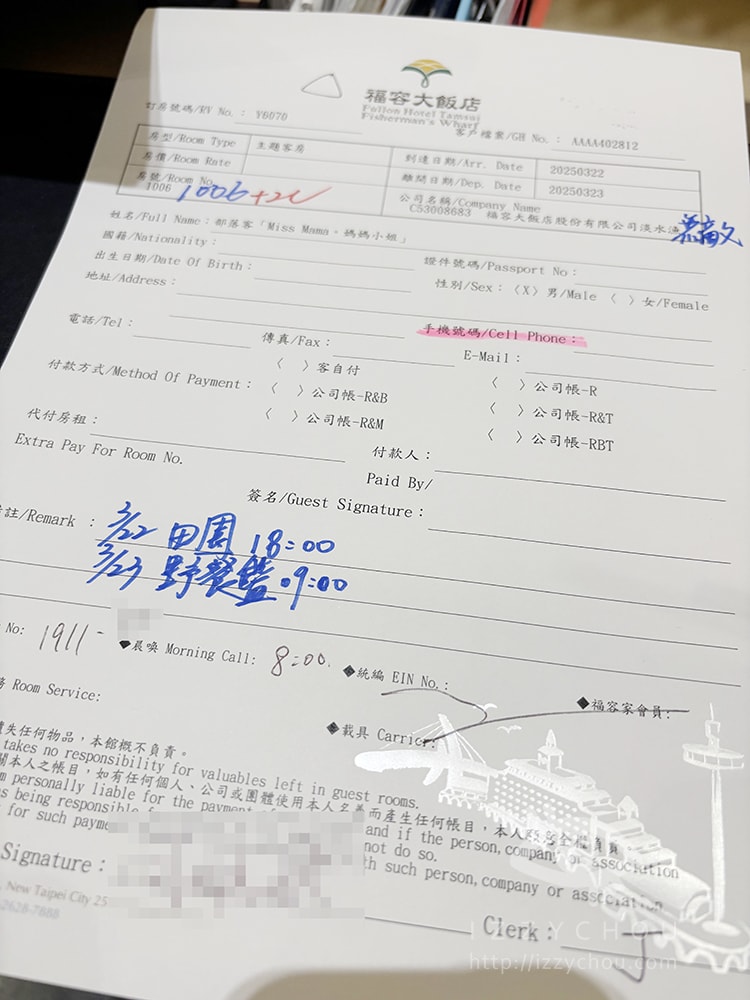 福容大飯店
Fullon Hotel Tamsui
Fisherman's Wharf
訂房號碼/RV No. : Y6070
客戶檔案/GH No. : AAAA402812
房型/Room Type 主題客房
到達日期/Arr. Date 20250322
房價/Room Rate
離開日期/Dep. Date 20250323
房號/Room No.
1006 1006+2c
公司名稱/Company Name
C53008683 福容大飯店股份有限公司淡水漁
姓名/Full Name:部落客「Miss Mama。媽媽小姐」
國籍/Nationality:
證件號碼/Passport No:
出生日期/Date Of Birth:
性別/Sex:〈X〉男/Male 〈 〉女/Female
地址/Address:
手機號碼/Cell Phone:
電話/Tel:
傳真/Fax:
E-Mail:
付款方式/Method Of Payment:
〈 〉客自付
〈 〉公司帳-R
〈 〉公司帳-R&B
〈 〉公司帳-R&T
〈 〉公司帳-R&M
〈 〉公司帳-RBT
代付房租:
Extra Pay For Room No.
付款人:
Paid By/
簽名/Guest Signature:
註/Remark :
3/22 田園 18:00
3/23 野餐籃 09:00
No: 1911-
◆晨喚 Morning Call: 8:00.
◆統編 EIN No.:
◆福容家會員:
Room Service:
◆載具 Carrier:
遺失任何物品,本館概不負責。
takes no responsibility for valuables left in guest rooms.
關本人之帳目,如有任何個人、公司或團體使用本人名義而產生任何帳目,本人願意全權負責
m personally liable for the payment
and if the person, company or association
s being responsible
not do so.
for such payme
th such person, company or association
Signature:
, New Taipei City 25
2628-7888
Clerk:
IZZYCHOU
http://izzychou.com